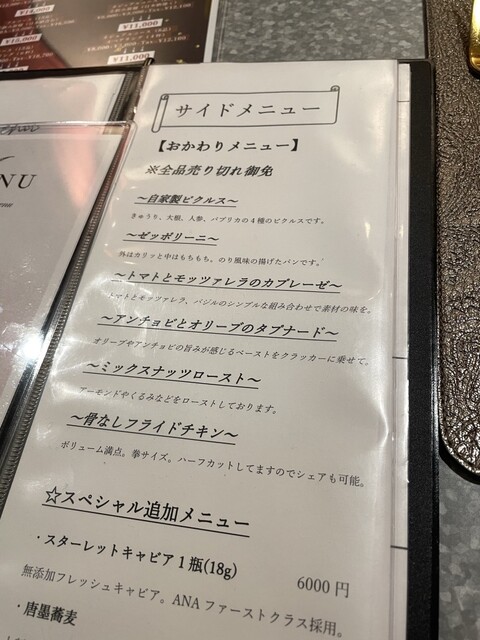 ¥11,000
¥11,000
NU
サイドメニュー
【おかわりメニュー】
※全品売り切れ御免
~自家製ピクルス~
きゅうり、大根、人参、パプリカの4種のピクルスです。
~ゼッポリーニ~
外はカリッと中はもちもち。のり風味の揚げたパンです。
~トマトとモッツァレラのカプレーゼ~
トマトとモッツァレラ、バジルのシンプルな組み合わせで素材の味を。
~アンチョビとオリーブのタプナード~
オリーブやアンチョビの旨みが感じるペーストをクラッカーに乗せて。
~ミックスナッツロースト~
アーモンドやくるみなどをローストしております。
~骨なしフライドチキン~
ボリューム満点。拳サイズ。ハーフカットしてますのでシェアも可能。
☆スペシャル追加メニュー
・スターレットキャビア1瓶(18g)
6000円
無添加フレッシュキャビア。ANAファーストクラス採用。
・唐墨蕎麦